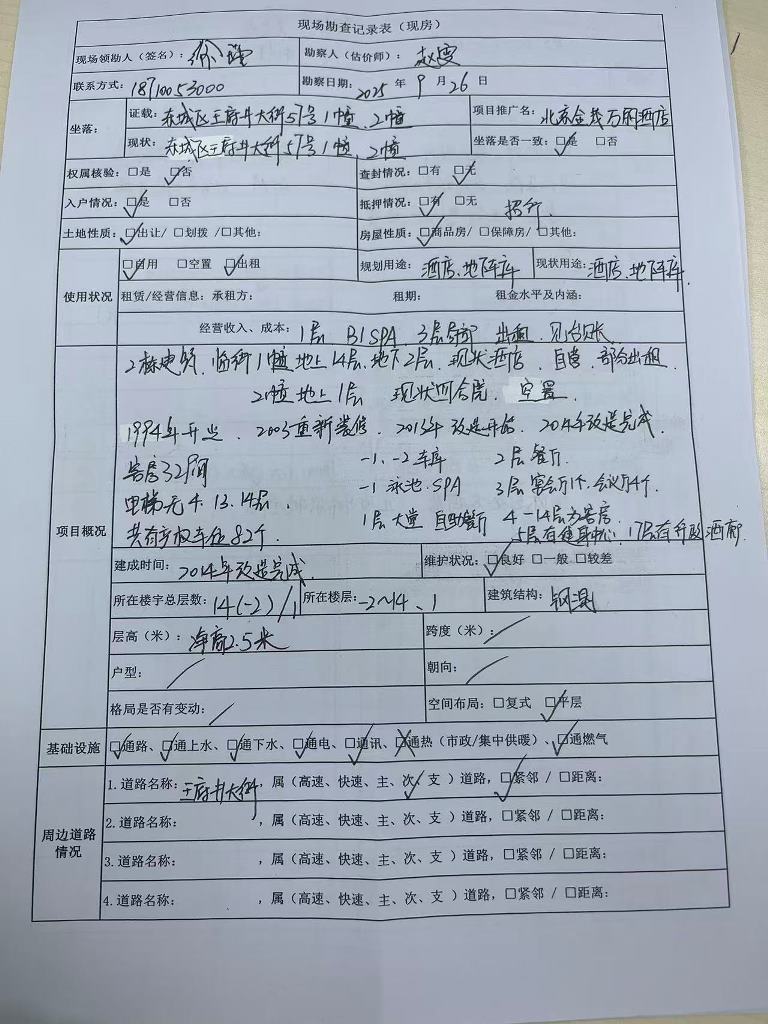 现场勘查记录表（现房）
现场领勘人（签名）： 勘察人（估价师）：
联系方式：18710053000 勘察日期：2025 年 9 月 26 日
坐落： 证载：东城区王府井大街57号1幢、2幢 项目推广名：北京金茂万丽酒店
现状：东城区王府井大街57号1幢、2幢 坐落是否一致：☑是 □否
权属核验：□是 ☑否 查封情况：□有 ☑无
入户情况：☑是 □否 抵押情况：☑有 □无 招行
土地性质：☑出让/ □划拨 /□其他: 房屋性质：☑商品房/ □保障房/ □其他:
使用状况 ☑自用 □空置 ☑出租 规划用途：酒店、地下车库 现状用途：酒店、地下车库
租赁/经营信息：承租方： 租期： 租金水平及内涵：
经营收入、成本：1层 B1 SPA 3层局部 出租 见台账
项目概况
2栋建筑，临街1幢地上14层，地下2层，现状酒店，自营，部分出租
2幢地上1层 现状四合院，空置
1994年开业、2003重新装修、2013年改造开始、2014年改造完成
客房329间 -1、-2车库 2层餐厅
电梯无4、13、14层、 -1 泳池、SPA 3层宴会厅1个、会议厅4个
共有产权车位82个 1层大堂 自助餐厅 4-14层为客房
5层有健身中心、17层有行政酒廊
建成时间：2014年改造完成 维护状况：☑良好 □一般 □较差
所在楼宇总层数：14(-2)/1 所在楼层：-2~14、1 建筑结构：钢混
层高（米）：净高2.5米 跨度（米）：/
户型：/ 朝向：/
格局是否有变动：/ 空间布局：□复式 ☑平层
基础设施 ☑通路、☑通上水、☑通下水、☑通电、☑通讯、☒通热（市政/集中供暖）、☑通燃气
周边道路情况
1.道路名称：王府井大街，属（高速、快速、主、次✓、支 ）道路，☑紧邻 / □距离:
2.道路名称： ，属（高速、快速、主、次、支 ）道路，□紧邻 / □距离:
3.道路名称： ，属（高速、快速、主、次、支 ）道路，□紧邻 / □距离:
4.道路名称： ，属（高速、快速、主、次、支 ）道路，□紧邻 / □距离: